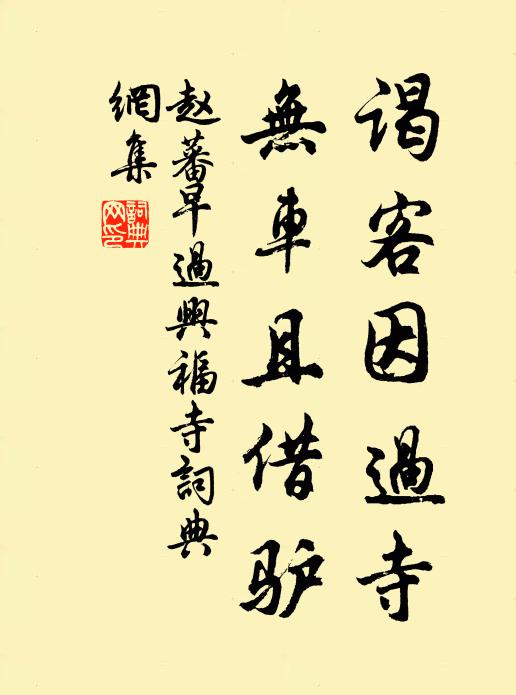 謁客因過寺
無車且借驴
赵蕃早過興福寺詞典
網集
詞典
网印